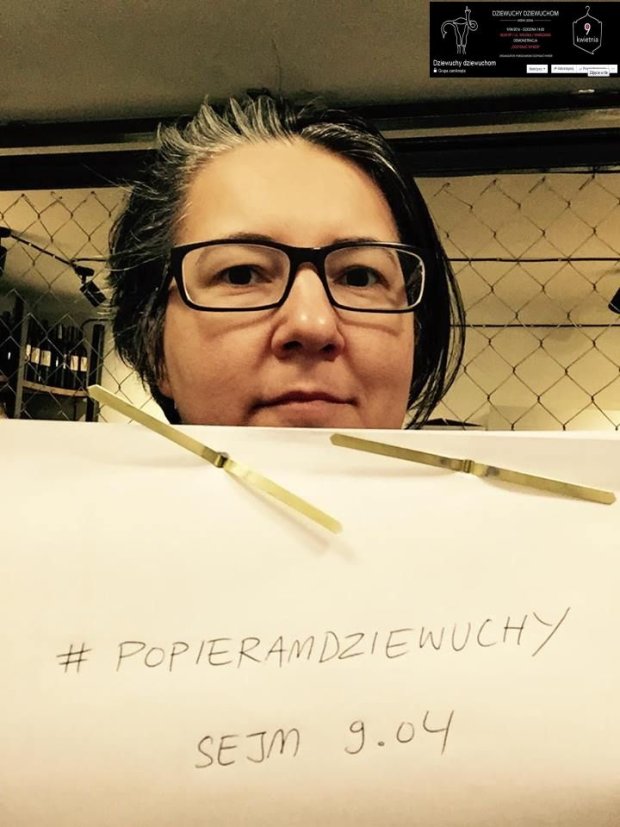 DZIEWUCHY DZIEWUCHOM
9
kwietnia
Dziewuchy dziewuchom
Grupa zamknięta
# POPIERAMDZIEWUCHY
SEJM 9.04